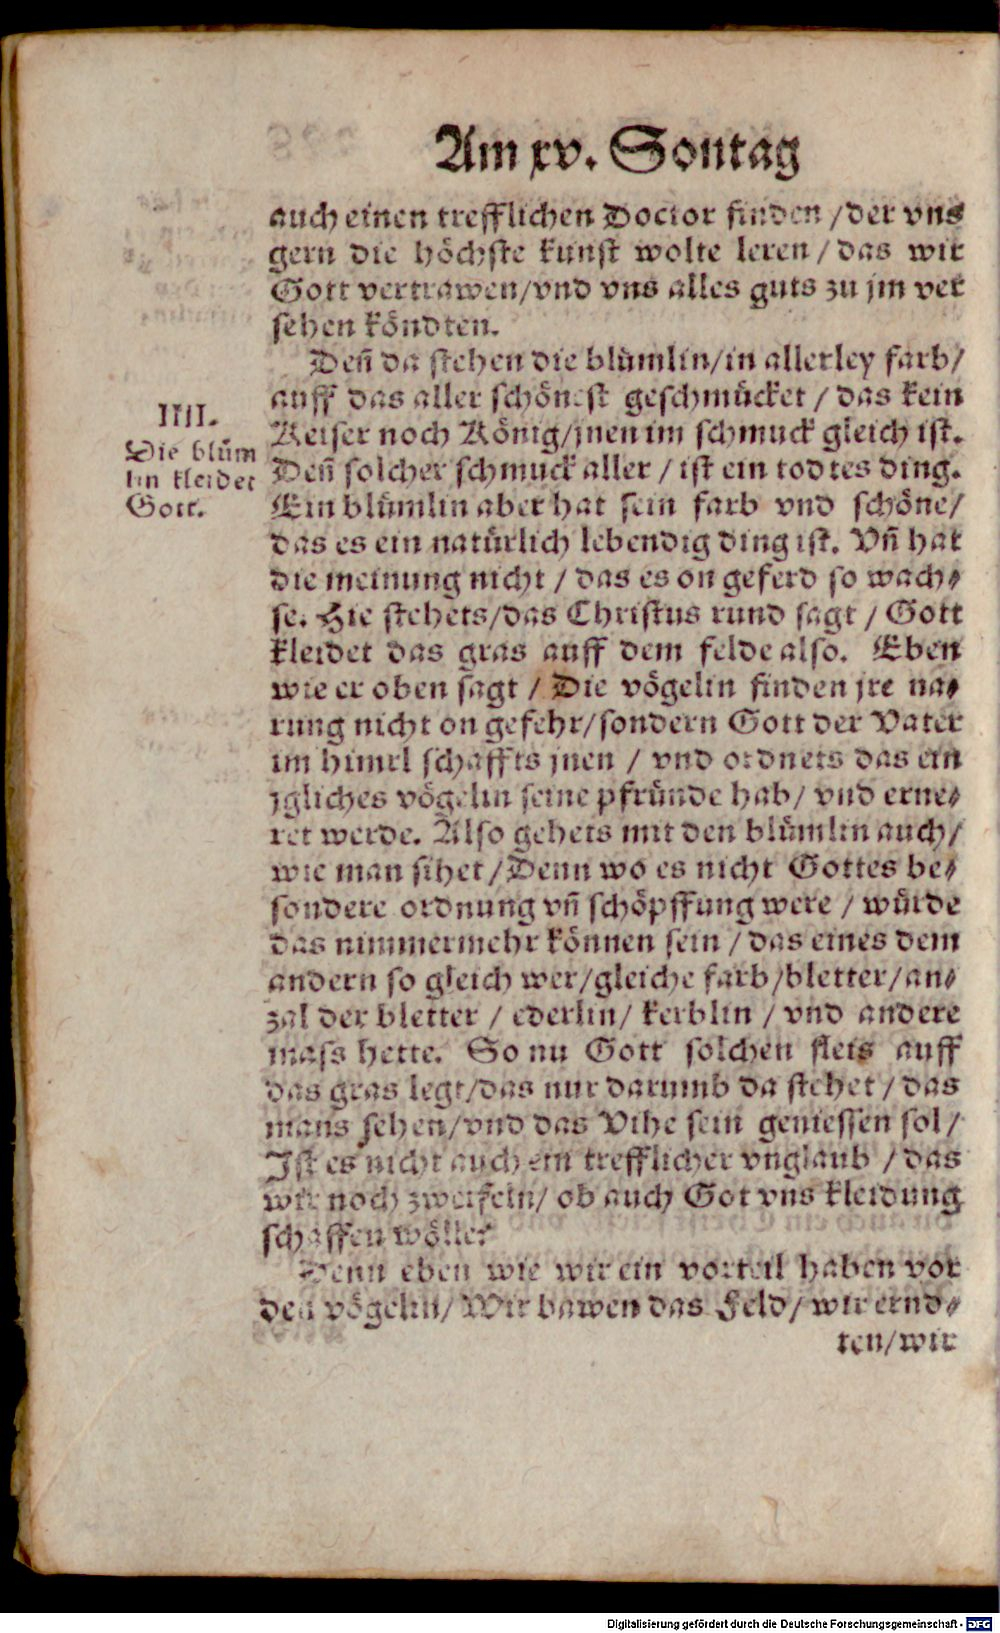 Am xv. Sontag
auch einen trefflichen Doctor finden / der vns
gern die höchste kunst wolte leren / das wir
Gott vertrawen / vnd vns alles guts zu jm ver
sehen köndten.
Deñ da stehen die blümlin / in allerley farb /
auff das aller schönest geschmücket / das kein
Keiser noch König / jnen im schmuck gleich ist.
Deñ solcher schmuck aller / ist ein todtes ding.
Ein blümlin aber hat sein farb vnd schöne /
das es ein natürlich lebendig ding ist. Vñ hat
die meinung nicht / das es on geferd so wach⸗
se. Hie stehets / das Christus rund sagt / Gott
kleidet das gras auff dem felde also. Eben
wie er oben sagt / Die vögelin finden jre na⸗
rung nicht on gefehr / sondern Gott der Vater
im himel schaffts jnen / vnd ordnets das ein
jgliches vögelin seine pfründe hab / vnd erne⸗
ret werde. Also gehets mit den blümlin auch /
wie man sihet / Denn wo es nicht Gottes be⸗
sondere ordnung vñ schöpffung were / würde
das nimmermehr können sein / das eines dem
andern so gleich wer / gleiche farb / bletter / an⸗
zal der bletter / ederlin / kerblin / vnd andere
mass hette. So nu Gott solchen fleis auff
das gras legt / das nur darumb da stehet / das
mans sehen / vnd das Vihe sein geniessen sol /
Ist es nicht auch ein trefflicher vnglaub / das
wir noch zweifeln / ob auch Got vns kleidung
schaffen wölle?
Denn eben wie wir ein vorteil haben vor
den vögelin / Wir bawen das Feld / wir ernd⸗
ten / wir
IIII.
Die blüm
lin kleidet
Gott.
Digitalisierung gefördert durch die Deutsche Forschungsgemeinschaft - DFG